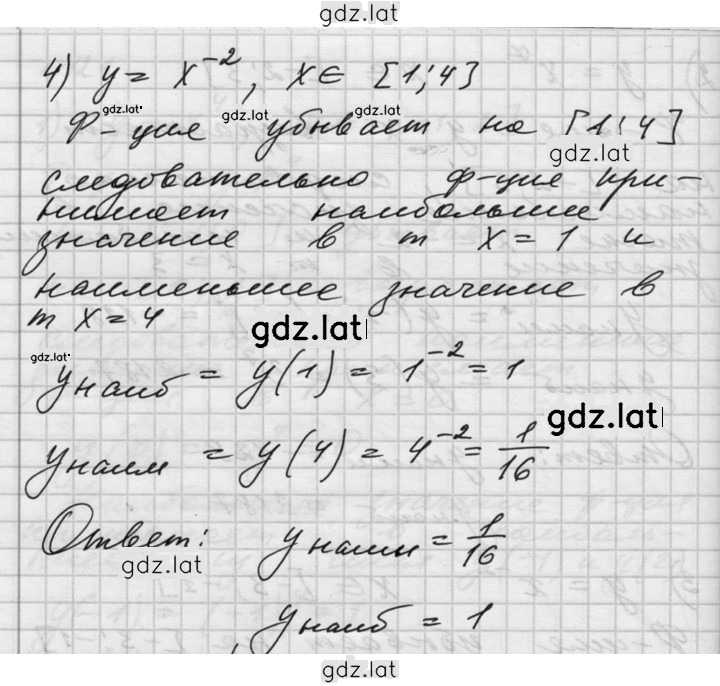 gdz.lat
4) y = x⁻², x ∈ [1; 4]
gdz.lat gdz.lat gdz.lat
Ф-ция убывает на [1; 4]
gdz.lat
следовательно ф-ция при-
нимает наибольшее
значение в т x = 1 и
наименьшее значение в
т x = 4
gdz.lat
gdz.lat
yнаиб = y(1) = 1⁻² = 1
gdz.lat
yнаим = y(4) = 4⁻² = 1/16
Ответ: yнаим = 1/16
gdz.lat
yнаиб = 1
gdz.lat